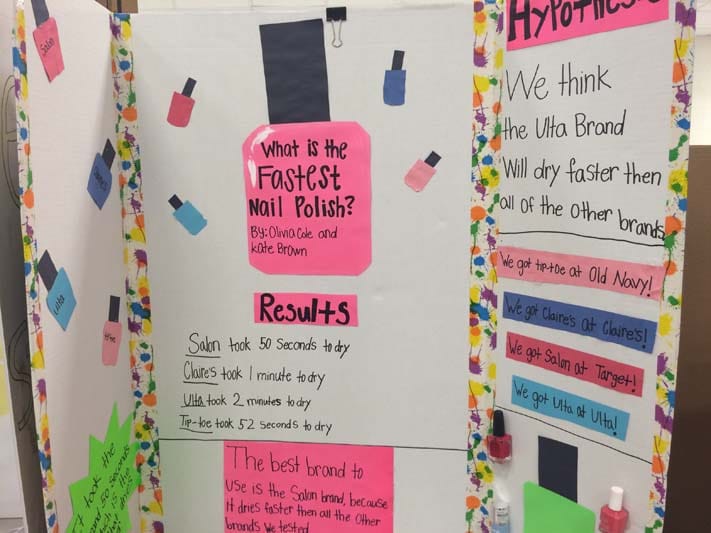 Salon
Claire's
Ulta
tip-toe
t took the
and 50 seconds
which is th
that dries
What is the
Fastest
Nail Polish?
By: Olivia Cole and
Kate Brown
Results
Salon took 50 Seconds to dry
Claire's took 1 minute to dry
Ulta took 2 minutes to dry
Tip-toe took 52 seconds to dry
The best brand to
use is the Salon brand, because
it dries faster then all the other
brands We tested
Hypothesis
We think
the Ulta Brand
Will dry faster then
all of the other brands
We got tip-toe at Old Navy!
We got Claire's at Claire's!
We got Salon at Target!
We got Ulta at Ulta!